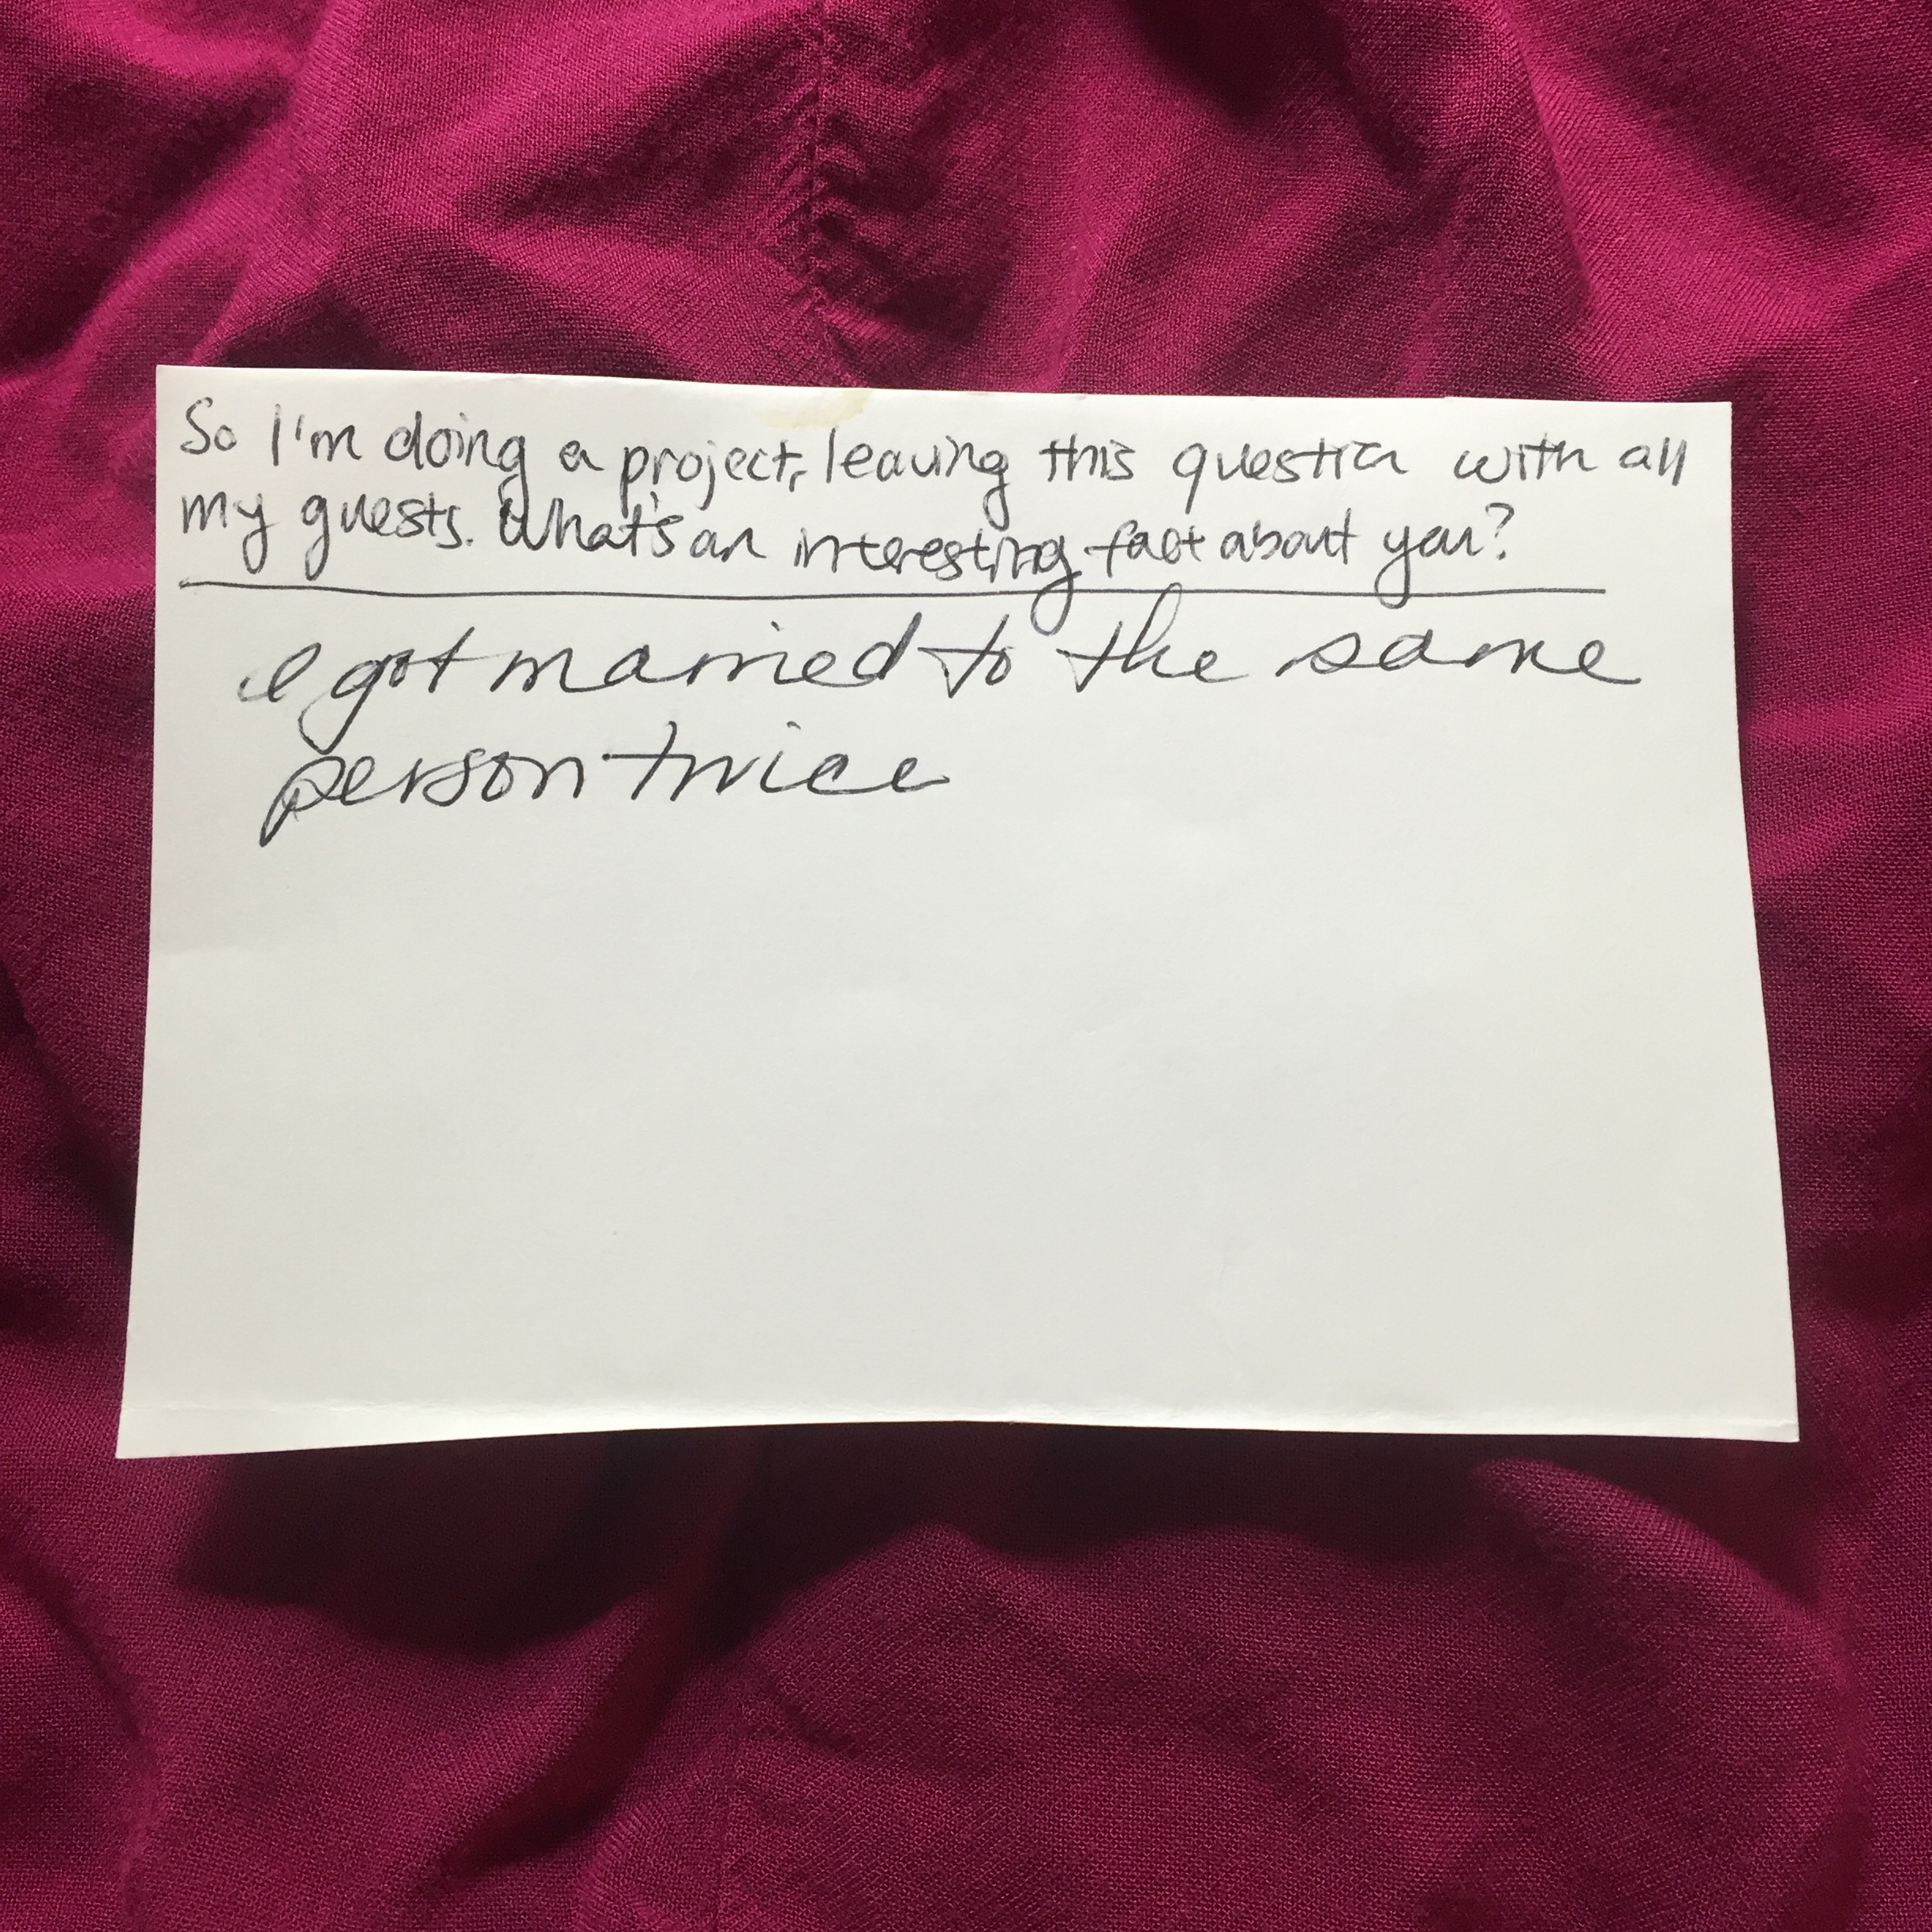 So I'm doing a project, leaving this question with all
my guests. What's an interesting fact about you?
I got married to the same
person twice